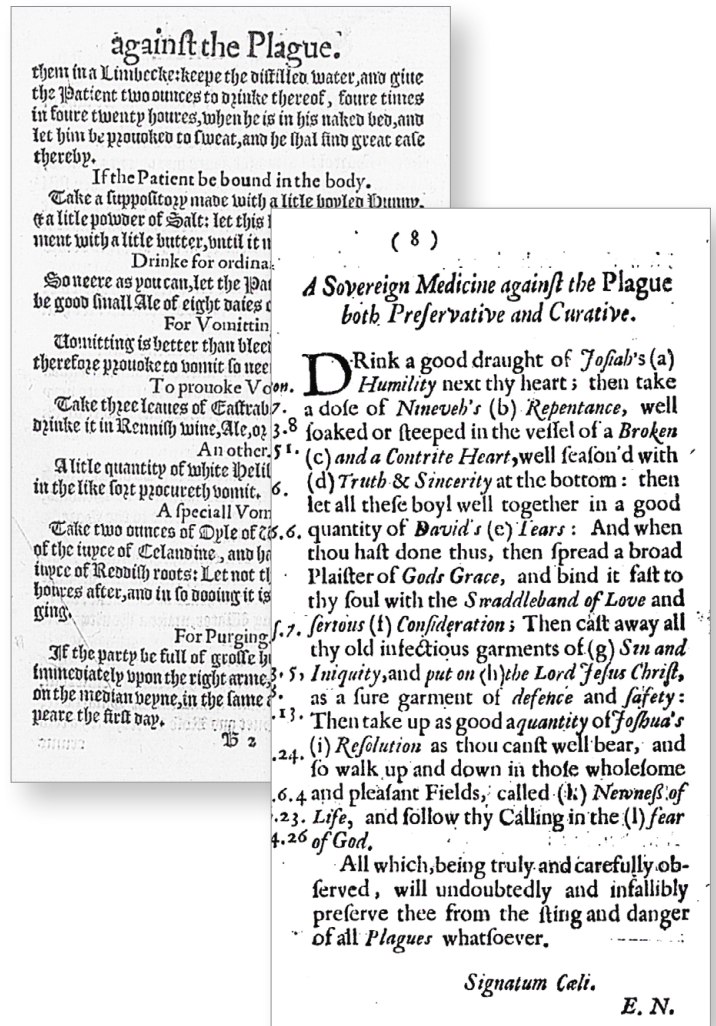 againſt the Plague.
them in a Limbecke: keepe the diſtilled water, and giue
the Patient two ounces to drinke thereof, foure times
in foure twenty houres, when he is in his naked bed, and
let him be prouoked to ſweat, and he ſhal find great eaſe
thereby.
If the Patient be bound in the body.
Take a ſuppoſitory made with a litle boyled Hunny,
& a litle powder of Salt: let this
ment with a litle butter, vntil it
Drinke for ordina
So neere as you can, let the
be good ſmall Ale of eight daies
For Vomittin
Uomitting is better than
therefore prouoke to vomit ſo
To prouoke Vo
Take three leaues of
drinke it in Renniſh wine, Ale, or
An other.
A litle quantity of white
in the like ſort procureth vomit.
A ſpeciall Vom
Take two ounces of Oyle of
of the iuyce of Celandine, and
iuyce of Reddiſh roots: Let not
houres after, and in ſo dooing it is
ging.
For Purging
If the party be full of groſſe
immediately vpon the right arme,
on the median veyne, in the ſame
peare the firſt day.
B 2
( 8 )
A Sovereign Medicine againſt the Plague
both Preſervative and Curative.
DRink a good draught of Joſiah's (a)
on. Humility next thy heart ; then take
7. a doſe of Nineveh's (b) Repentance, well
3.8 ſoaked or ſteeped in the veſſel of a Broken
51. (c) and a Contrite Heart, well ſeaſon'd with
6. (d) Truth & Sincerity at the bottom : then
let all theſe boyl well together in a good
5.6. quantity of David's (e) Tears : And when
thou haſt done thus, then ſpread a broad
Plaiſter of Gods Grace, and bind it faſt to
thy ſoul with the Swaddleband of Love and
.7. ſerious (f) Conſideration ; Then caſt away all
thy old infectious garments of (g) Sin and
3. 5, Iniquity, and put on (h) the Lord Jeſus Chriſt,
as a ſure garment of defence and ſafety :
.13. Then take up as good a quantity of Joſhua's
(i) Reſolution as thou canſt well bear, and
.24. ſo walk up and down in thoſe wholeſome
.6.4 and pleaſant Fields, called (k) Newneß of
.23. Life, and follow thy Calling in the (l) fear
4.26 of God.
All which, being truly and carefully ob-
ſerved , will undoubtedly and infallibly
preſerve thee from the ſting and danger
of all Plagues whatſoever.
Signatum Cæli.
E. N.